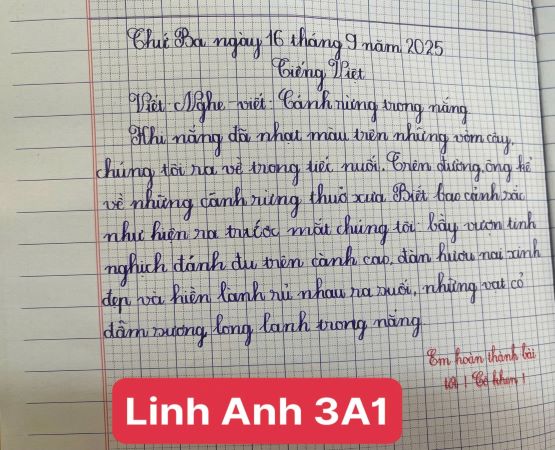 Thứ Ba ngày 16 tháng 9 năm 2025
Tiếng Việt
Viết: Nghe - viết: Cánh rừng trong nắng
Khi nắng đã nhạt màu trên những vòm cây,
chúng tôi ra về trong tiếc nuối. Trên đường, ông kể
về những cánh rừng thuở xưa. Biết bao cảnh sắc
như hiện ra trước mắt chúng tôi: bầy vượn tinh
nghịch đánh đu trên cành cao, đàn hươu nai xinh
đẹp và hiền lành rủ nhau ra suối, những vạt cỏ
đẫm sương long lanh trong nắng
Em hoàn thành bài
tốt! Cô khen!
Linh Anh 3A1